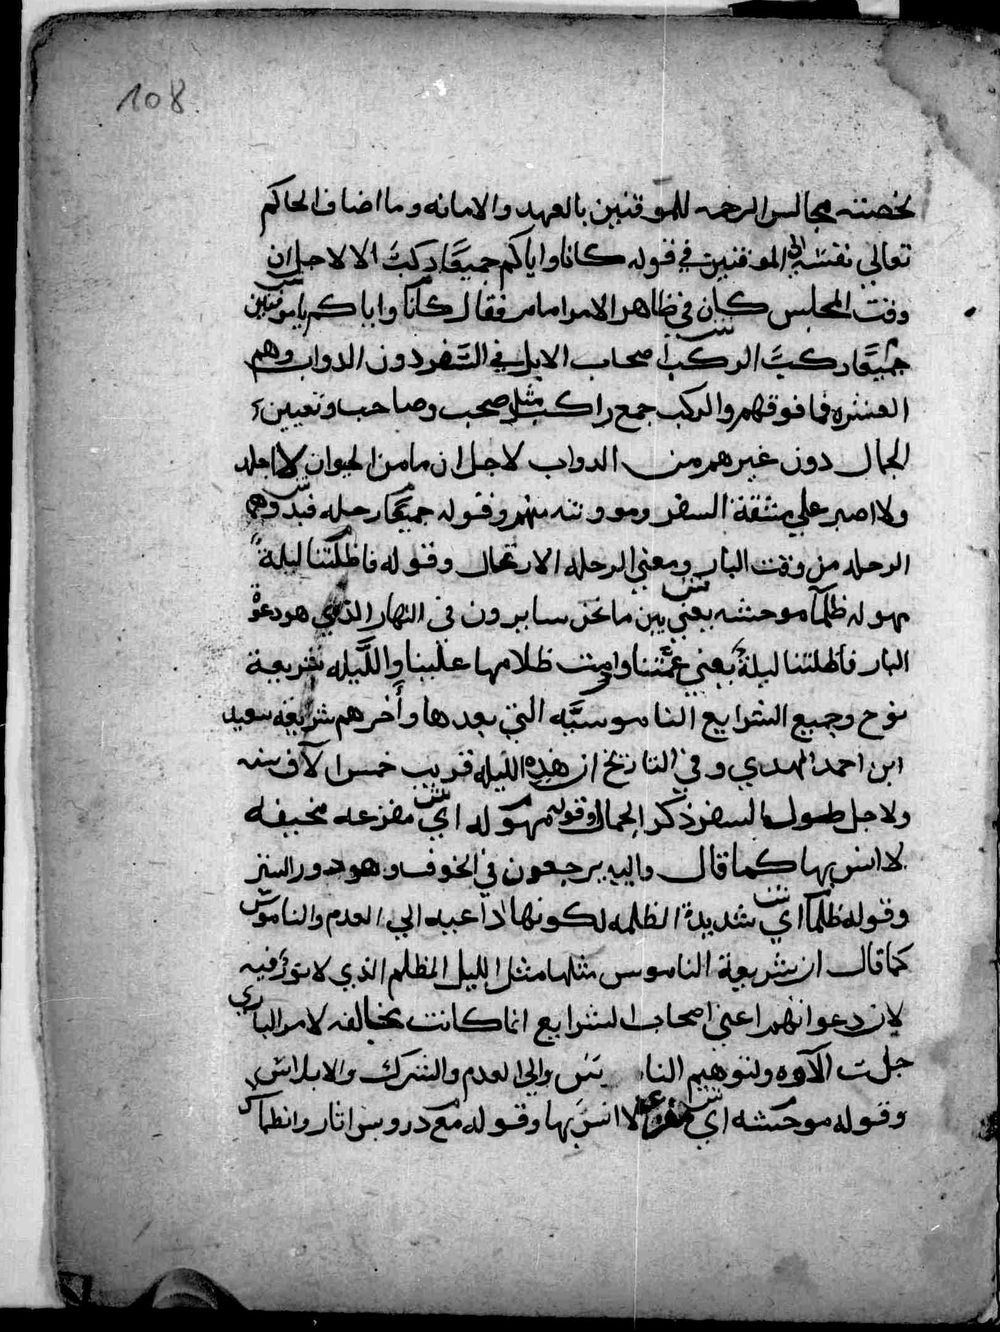 108
لخصته مجالس الرحمه للموقنين بالعهد والامانه وما اضاف الحاكم
تعالي نفسه الي الموقنين في قوله كانا واياكم جميعًا ركبٌ الا لاجل ان
وقت المجلس كان في ظاهر الامر امام فقال كانا واياكم ياموقنين
جميعًا ركبٌ الركب اصحاب الابل في السَّفر دون الدواب وهم
العشره فما فوقهم والركب جمع راكب مثل صحب وصاحب وتعيين
الجمال دون غيرهم من الدواب لاجل ان ما من الحيوان لا اجلد
ولا اصبر علي مشقة السفر ومووتته منهم وقوله جميعًا رحله فبدوهم
الرحله من وقت البار ومعني الرحله الارتحال وقوله فاظلتنا ليلة
مهوله ظلمآ موحشه يعني بين ما نحن سايرون في النهار الذي هو دعوة
البار فاظلتنا ليلةٌ يعني غمَّتنا وارمت ظلامها علينا واللَّيله شريعة
نوح وجميع الشرايع الناموسيَّه التي بعدها وأخرهم شريعة سعيد
ابن احمد المهدي وفي التاريخ ان هذه الليله قريب خمس الآف سنه
ولاجل طول السفر ذكر الجمال وقوله مهوله اي مفزعه مخيفه
لا انس بها كما قال واليه يرجعون في الخوف وهو دور الستر
وقوله ظلمآ اي شديدة الظلمه لكونها داعيه الي العدم والناموس
كما قال ان شريعة الناموس مثلها مثل الليل المظلم الذي لا نور فيه
لان دعواتهم اعني اصحاب الشرايع انما كانت مخالفه لامر الباري
جلت الآوه ولتوهيم النا والي العدم والشرك والابلاس
وقوله موحشه اي لا انس بها وقوله مع دروس اثار وانطماس